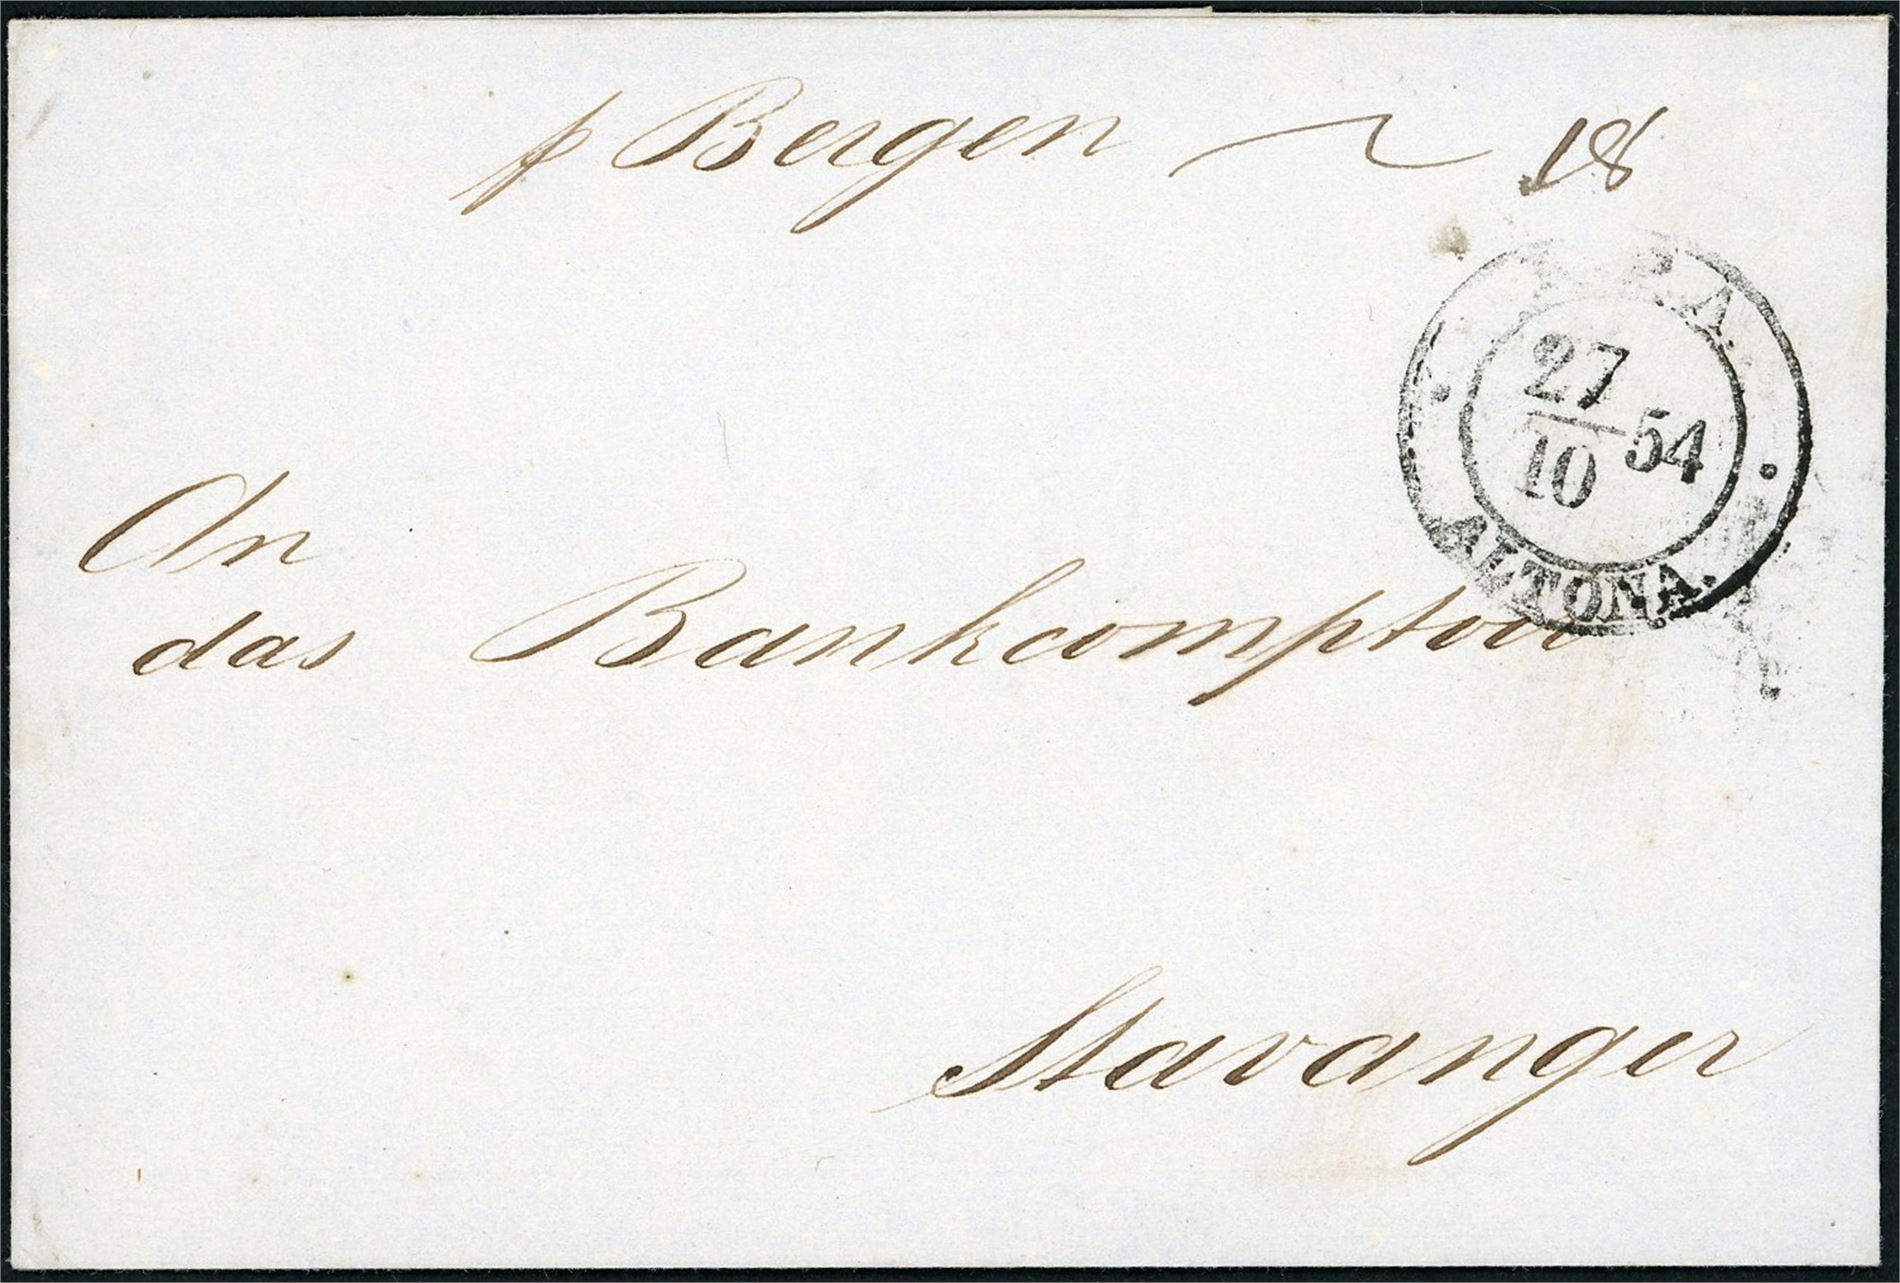 p Bergen 18
27
10 54
ALTONA.
An
das Bankcomptoir
Stavanger